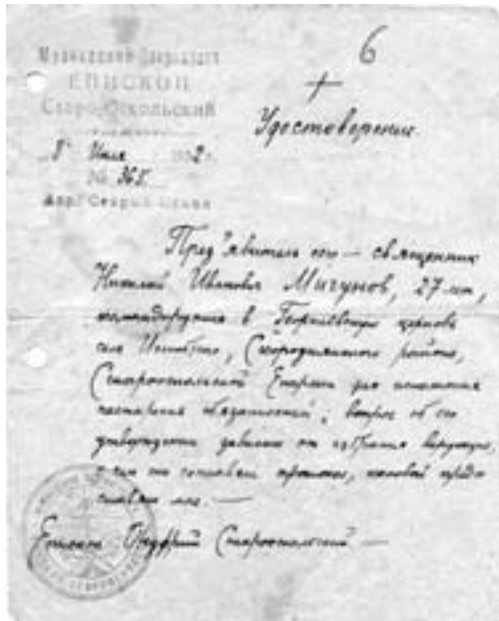 6
Московский Патриархат
ЕПИСКОП
Старо-Оскольский
Удостоверение.
8 Июля 1932 г.
№ 365
Адр.: Старый Оскол
Пред'явитель сего — священник
Николай Иванович Мигунов, 27 лет,
командируется в Георгиевскую церковь
села Истобного, Скороднянского района,
Старооскольской Епархии для исполнения
пастырских обязанностей; вопрос об его
утверждении зависит от избрания
о чем составлен протокол, каковой
мне. —
Епископ Онуфрий Старооскольский —